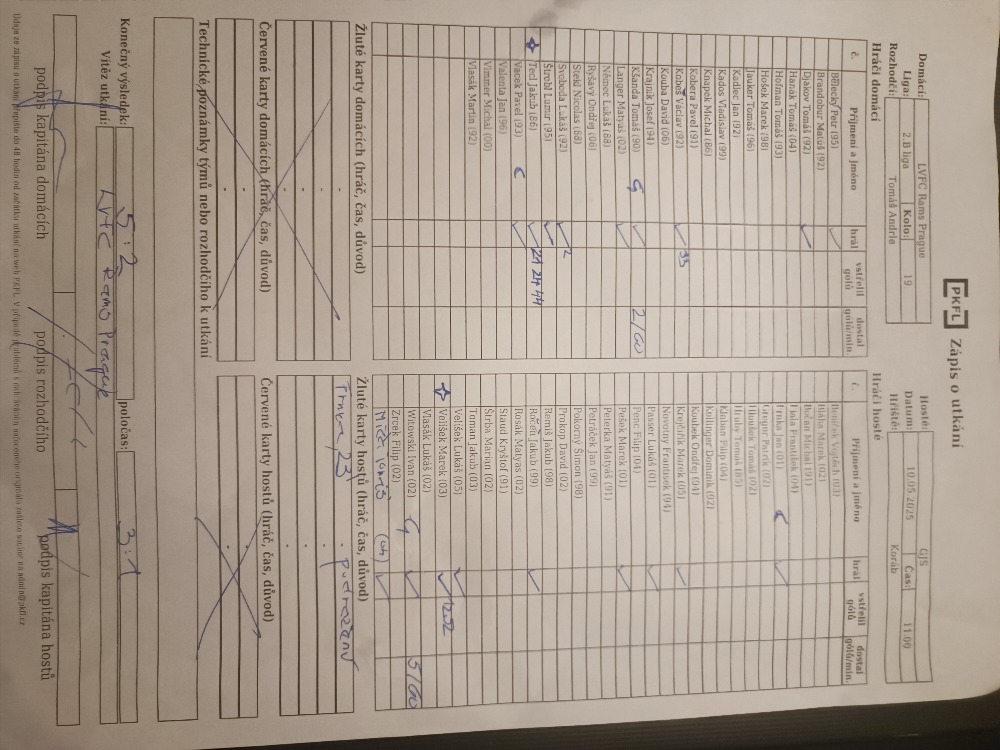 PKFL Zápis o utkání
Domácí: LVFC Rams Prague
Liga: 2.B liga Kolo: 19
Rozhodčí: Tomáš Andrle
Hosté: GJS
Datum: 10.05.2025 Čas: 11:00
Hřiště: Koráb
Hráči domácí
č. Příjmení a jméno hrál vstřelil gólů dostal gólů/min.
Bělecký Petr (95)
Brandobur Matúš (92)
Djakov Tomáš (92)
Hanák Tomáš (04)
Hofman Tomáš (93)
Hošek Marek (98)
Jauker Tomáš (96)
Kadlec Jan (92)
Kados Vladislav (99)
Knapek Michal (86)
Kobera Pavel (91)
Kobeš Václav (92) 33
Kouba David (06)
Krajník Josef (94)
Kšanda Tomáš (90) G 2/60
Langer Matyáš (02)
Němec Lukáš (88)
Ryšavý Ondřej (06)
Stekl Nicolas (88)
Svoboda Lukáš (92) 2
Štrobl Lumír (95)
Tecl Jakub (86) 21 24 44
Vacek Pavel (93) C
Valenta Jan (96)
Vimmer Michal (00)
Vlasák Martin (92)
Žluté karty domácích (hráč, čas, důvod)
Červené karty domácích (hráč, čas, důvod)
Technické poznámky týmů nebo rozhodčího k utkání
Hráči hosté
č. Příjmení a jméno hrál vstřelil gólů dostal gólů/min.
Bláha Marek (02)
Fiala František (04)
Frnka Jan (01) C
Hloušek Tomáš (02)
Hrubý Tomáš (05)
Klaban Filip (04)
Kollinger Dominik (92)
Koubek Ondřej (04)
Krejčiřík Marek (05)
Novotný František (94)
Passer Lukáš (01)
Penc Filip (04)
Pešek Marek (01)
Peterka Matyáš (91)
Petrášek Jan (99)
Pokorný Šimon (98)
Prokop David (02)
Remiš Jakub (98)
Ročejn Jakub (99)
Rosák Matyas (02)
Staud Kryštof (91)
Štrba Marian (02)
Toman Jakub (03)
Velíšek Lukáš (05)
Velíšek Marek (03) 12.52
Vlasák Lukáš (02)
Witowski Ivan (02) G 5/60
Zrcek Filip (02)
Žluté karty hostů (hráč, čas, důvod)
Frnka, 23, podražení
Červené karty hostů (hráč, čas, důvod)
Konečný výsledek: 5:2 poločas: 3:1
Vítěz utkání: LVFC Rams Prague
podpis kapitána domácích podpis rozhodčího podpis kapitána hostů